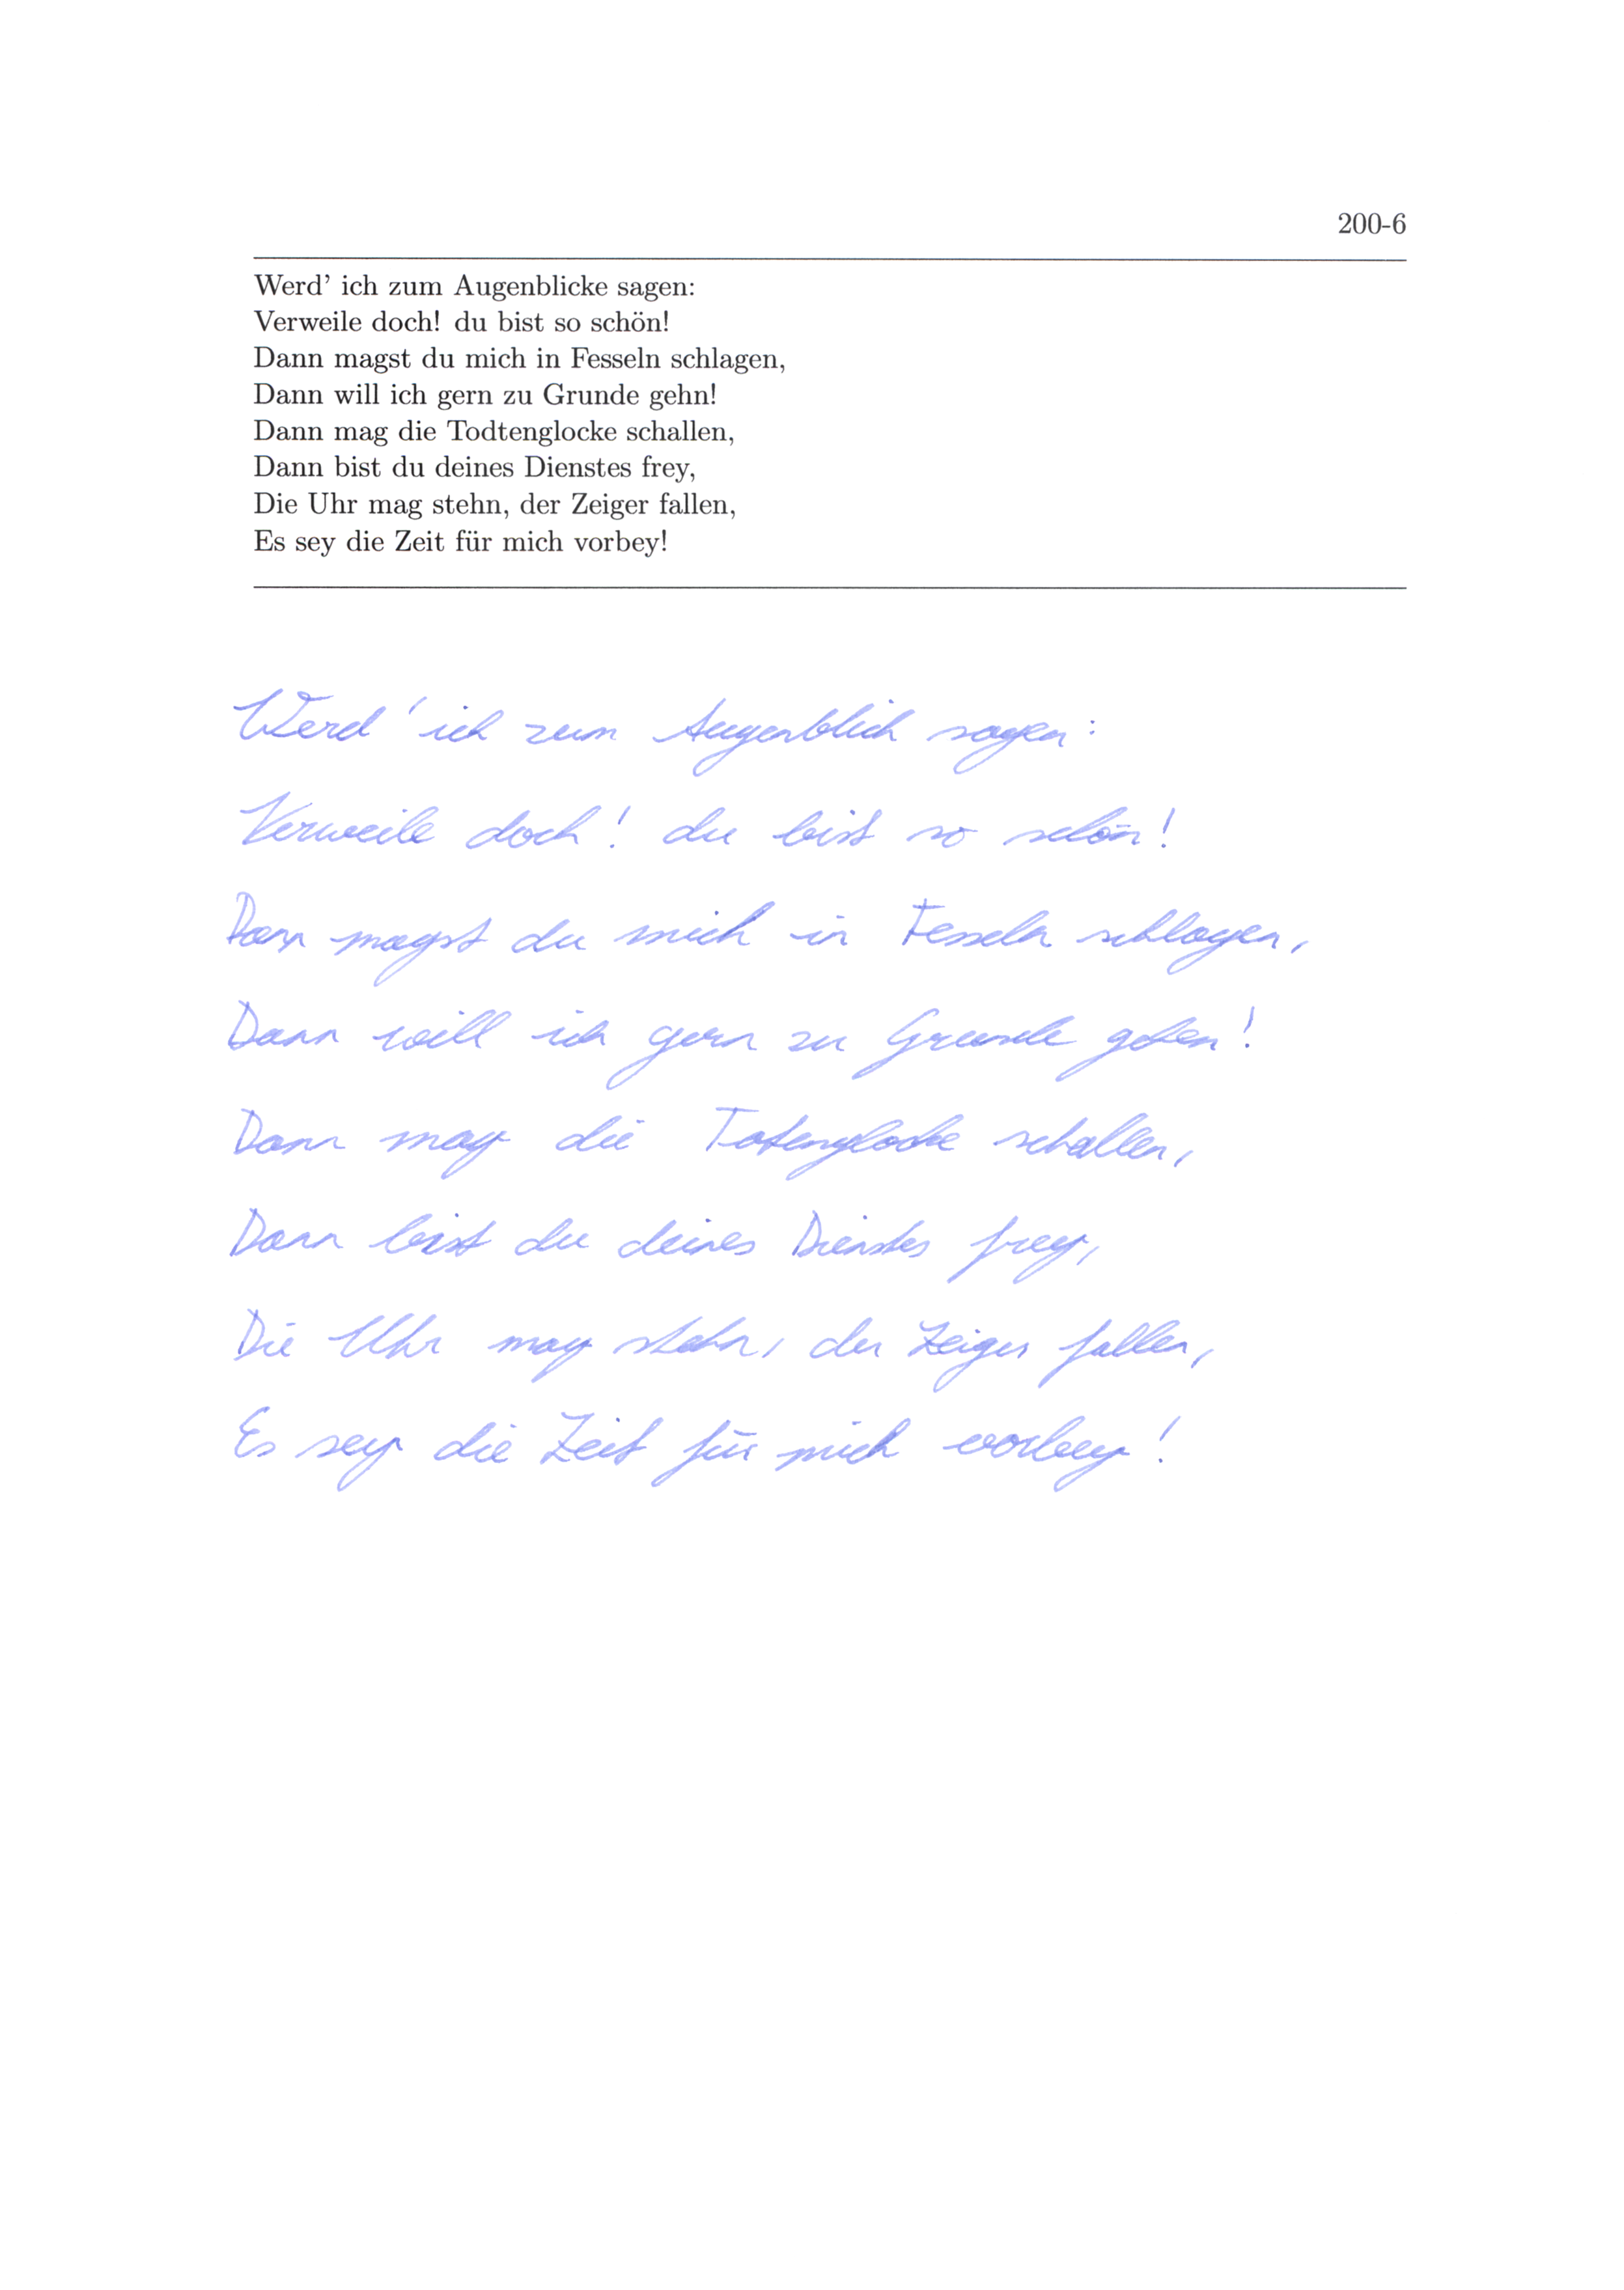 200-6
Werd' ich zum Augenblicke sagen:
Verweile doch! du bist so schön!
Dann magst du mich in Fesseln schlagen,
Dann will ich gern zu Grunde gehn!
Dann mag die Todtenglocke schallen,
Dann bist du deines Dienstes frey,
Die Uhr mag stehn, der Zeiger fallen,
Es sey die Zeit für mich vorbey!
Werd' ich zum Augenblick sagen:
Verweile doch! du bist so schön!
Dann magst du mich in Fesseln schlagen,
Dann will ich gern zu Grunde gehen!
Dann mag die Totenglocke schallen,
Dann bist du deines Dienstes frey,
Die Uhr mag stehn, der Zeiger fallen,
Es sey die Zeit für mich vorbey!